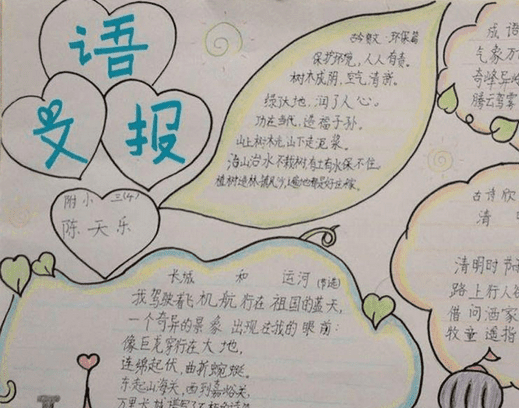 语
文
报
附小 三(4)
陈天乐
古今贤文·环保篇
保护环境,人人有责。
树木成荫,空气清新。
绿化大地,润了人心。
功在当代,造福子孙。
山上树木光,山下走泥浆。
治山治水不栽树,有土有水保不住。
植树造林
长城 和 运河(节选)
我驾驶着飞机航行在祖国的蓝天,
一个奇异的景象出现在我的眼前:
像巨龙穿行在大地,
连绵起伏,曲折蜿蜒。
东起山海关,西到嘉峪关,
万里长城
成语
气象万
奇峰异
腾云驾雾
古诗欣
清
清明时节
路上行人
借问酒家
牧童遥指